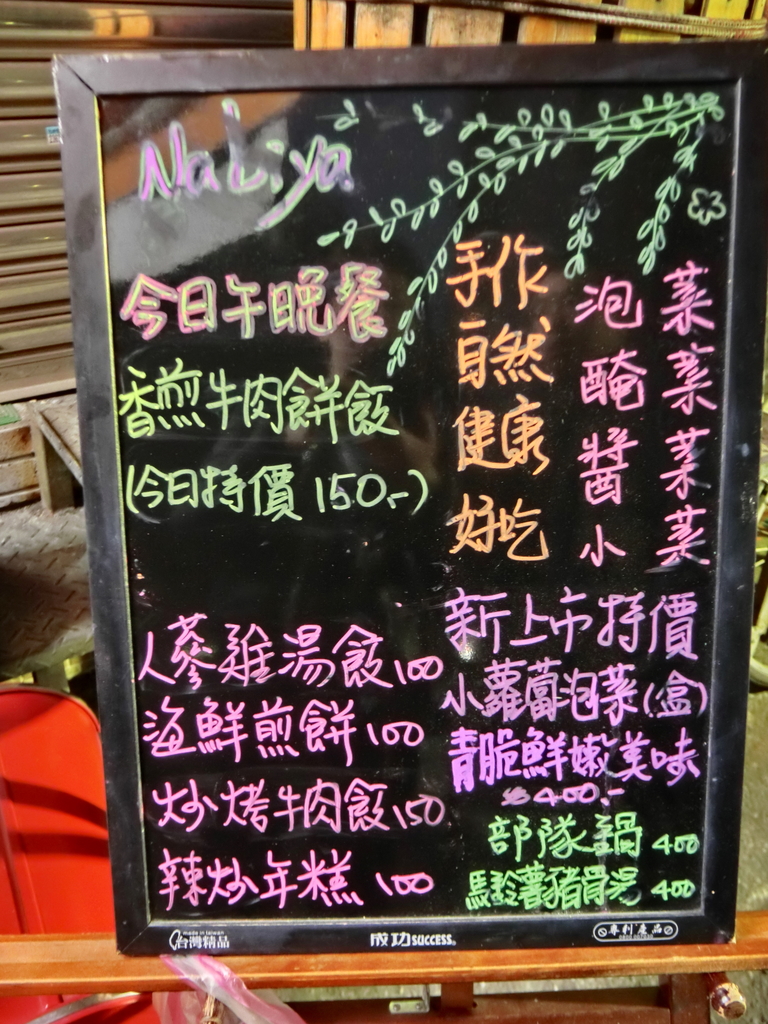 NaLiya
今日午晚餐
香煎牛肉餅飯
(今日特價 150.-)
人蔘雞湯飯100
海鮮煎餅100
炒烤牛肉飯150
辣炒年糕 100
手作
自然
健康
好吃
泡菜
醃菜
醬菜
小菜
新上市特價
小蘿蔔泡菜(盒)
青脆鮮嫩美味
400.-
部隊鍋 400
馬鈴薯豬骨湯 400
made in taiwan
台灣精品
成功SUCCESS®
專利產品